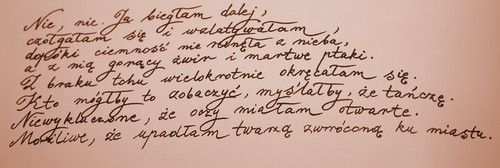 Nie, nie. Ja biegłam dalej,
czołgałam się i wzlatywałam,
dopóki ciemność nie runęła z nieba,
a z nią gorący żwir i martwe ptaki.
Z braku tchu wielokrotnie okręcałam się.
Kto mógłby to zobaczyć, myślałby, że tańczę.
Niewykluczone, że oczy miałam otwarte.
Możliwe, że upadłam twarzą zwróconą ku miastu.